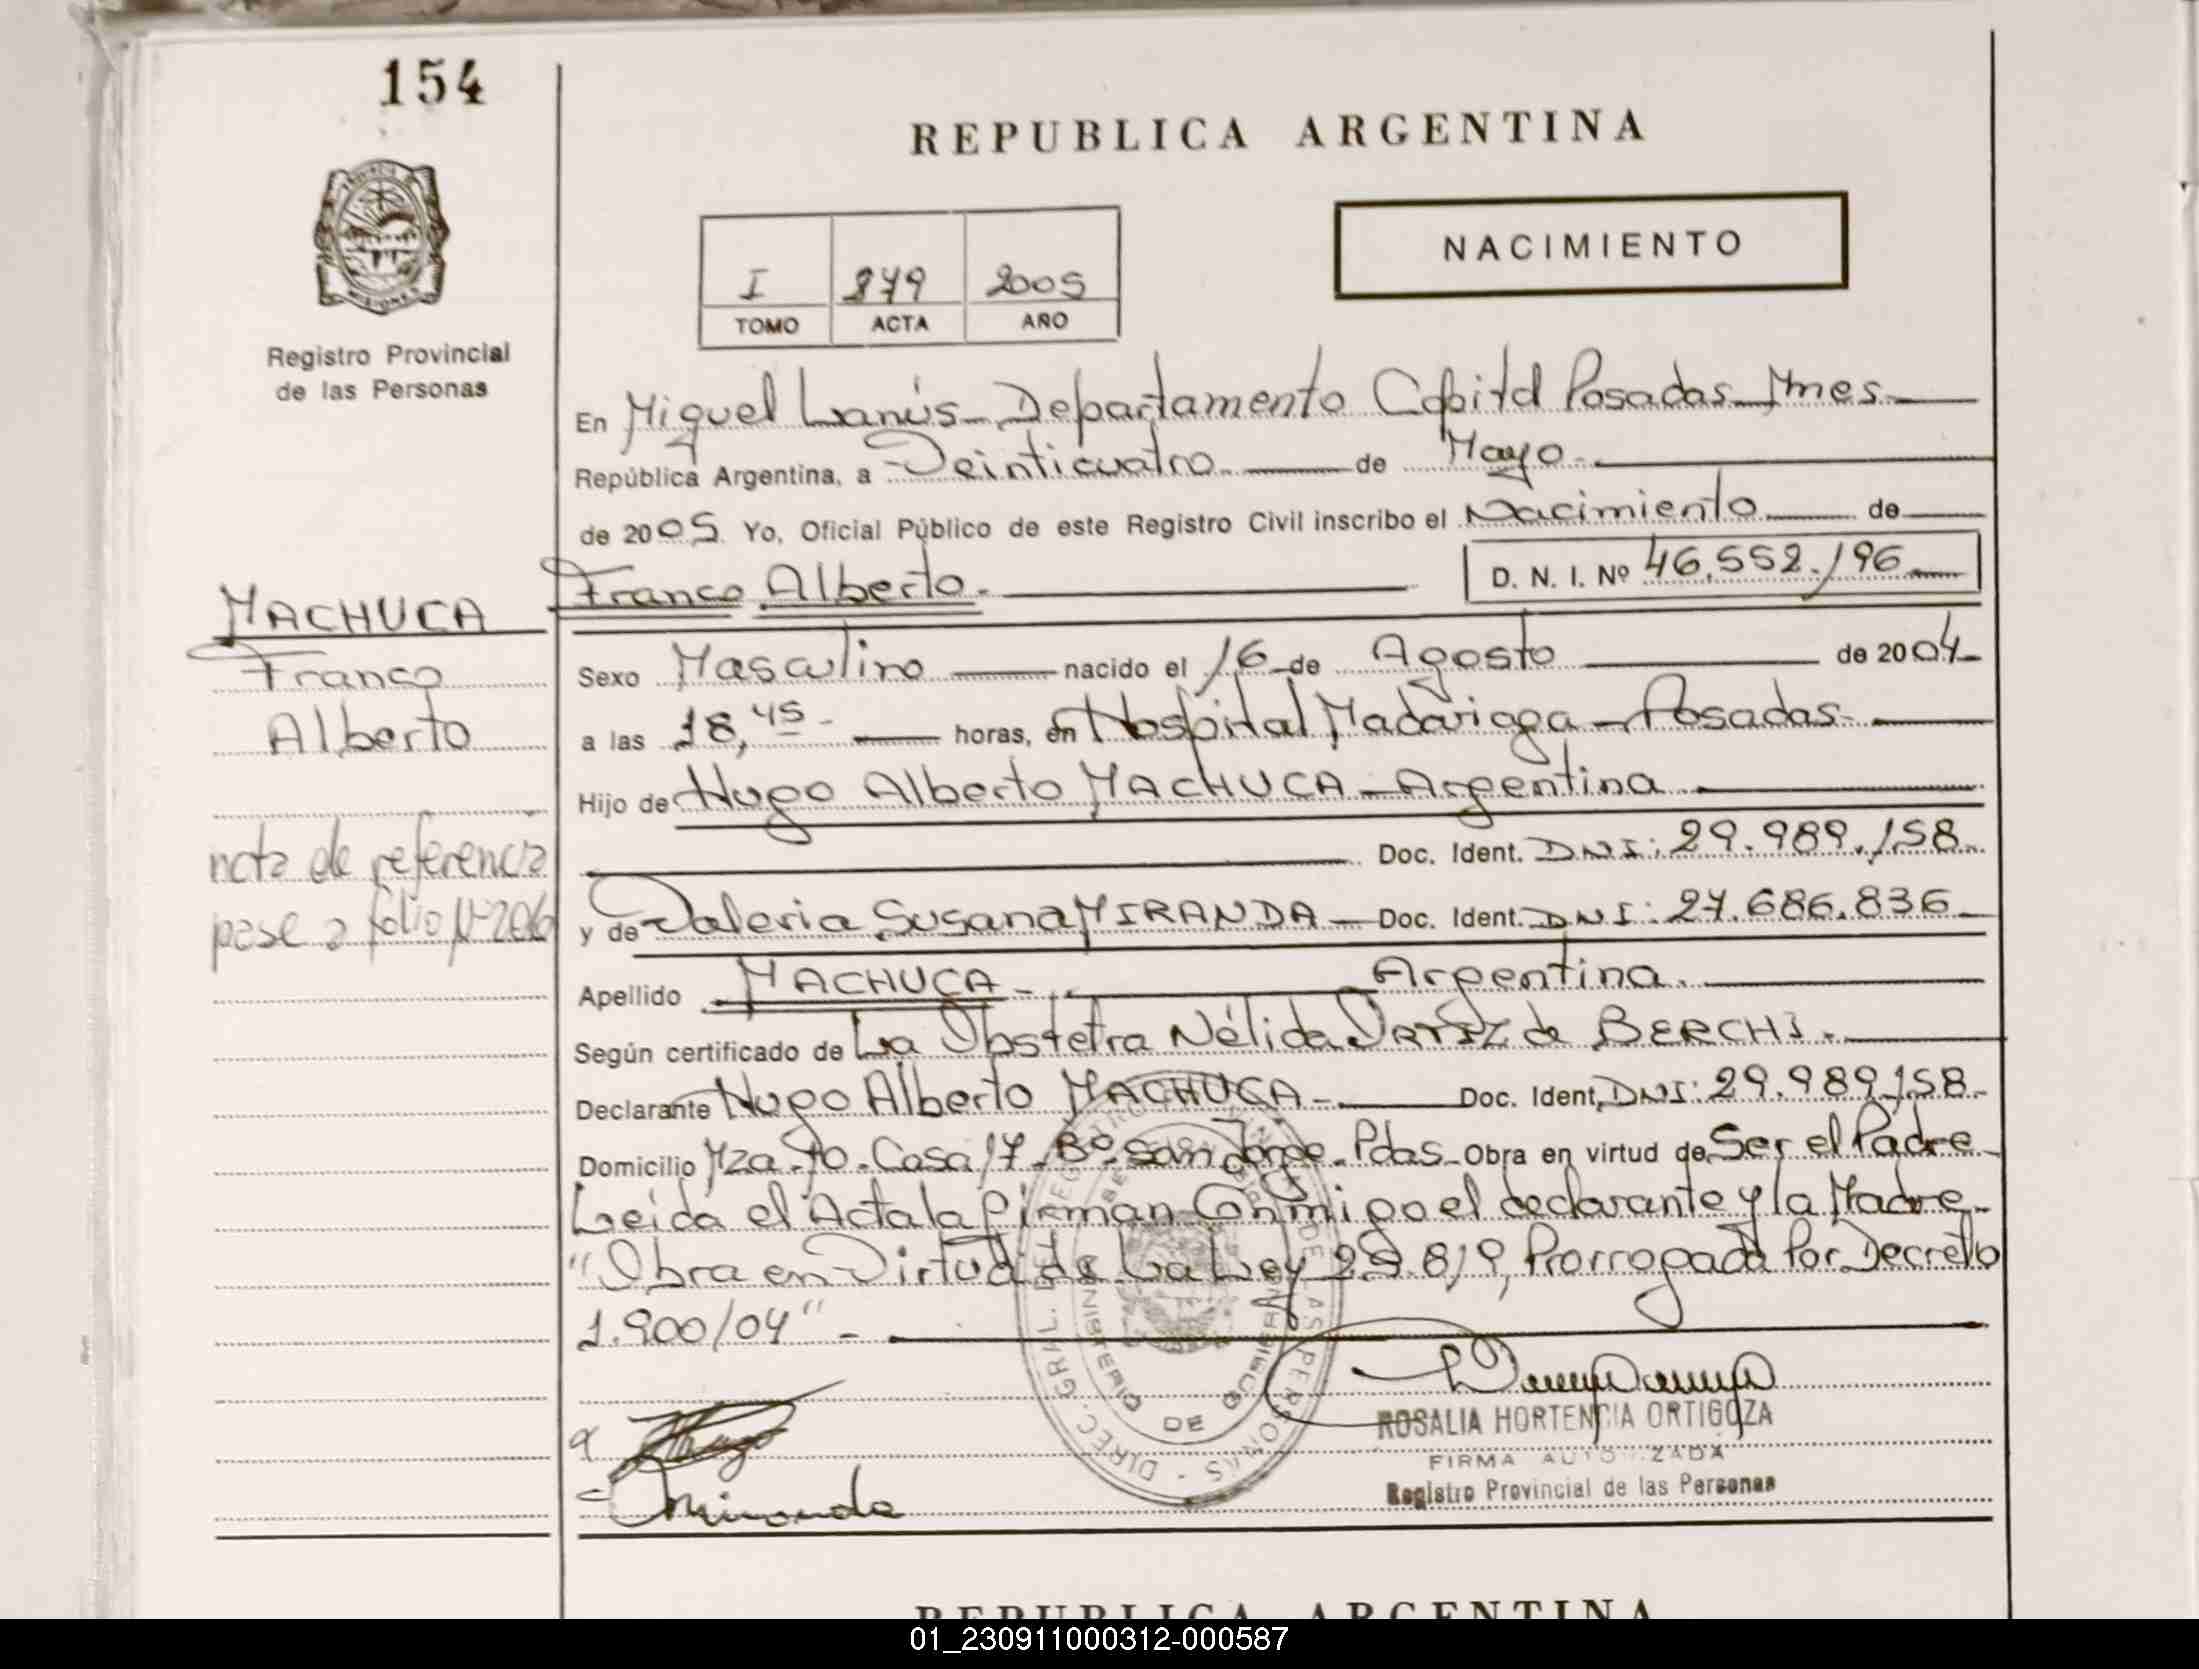 154
REPUBLICA ARGENTINA
NACIMIENTO
I 279 2005
TOMO ACTA AÑO
Registro Provincial
de las Personas
En Miguel Lanús - Departamento Capital Posadas - Mnes -
República Argentina, a Veinticuatro de Mayo -
de 2005 Yo, Oficial Público de este Registro Civil inscribo el Nacimiento de
Franco Alberto - D. N. I. Nº 46.552.196
MACHUCA
Franco
Alberto
Sexo Masculino nacido el 16 de Agosto de 2004
a las 18,45 - horas, en Hospital Madariaga - Posadas -
Hijo de Hugo Alberto MACHUCA - Argentina
Doc. Ident. DNI: 29.989.158
nota de referencia
pase a folio Nº 206
y de Valeria Susana MIRANDA - Doc. Ident. DNI: 27.686.836
Apellido MACHUCA - Argentina.
Según certificado de La Obstetra Nélida de BERCHI.
Declarante Hugo Alberto MACHUCA - Doc. Ident. DNI: 29.989.158
Domicilio Mza. 70. Casa 17. Bº San Jorge. Pdas - Obra en virtud de Ser el Padre
Leida el Acta la firman Conmigo el declarante y la Madre.
"Obra en Virtud de La Ley 25.819, Prorrogada Por Decreto
1.900/04" -
Miranda
DIREC. GRAL. DE REGISTRO DE LAS PERSONAS
MINISTERIO DE GOBIERNO
ROSALIA HORTENCIA ORTIGOZA
FIRMA AUTORIZADA
Registro Provincial de las Personas
REPUBLICA ARGENTINA
01_230911000312-000587